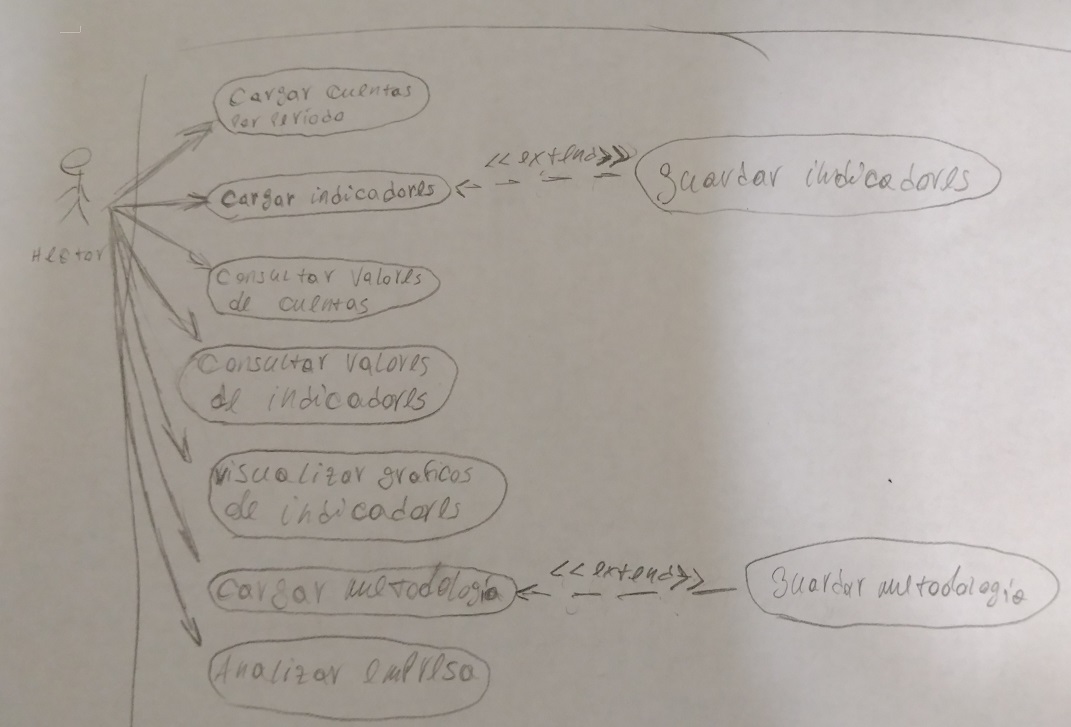 Cargar cuentas
por periodo
Hector
Cargar indicadores
<<extend>>
guardar indicadores
Consultar valores
de cuentas
Consultar valores
de indicadores
visualizar graficos
de indicadores
Cargar metodologia
<<extend>>
guardar metodologia
Analizar empresa